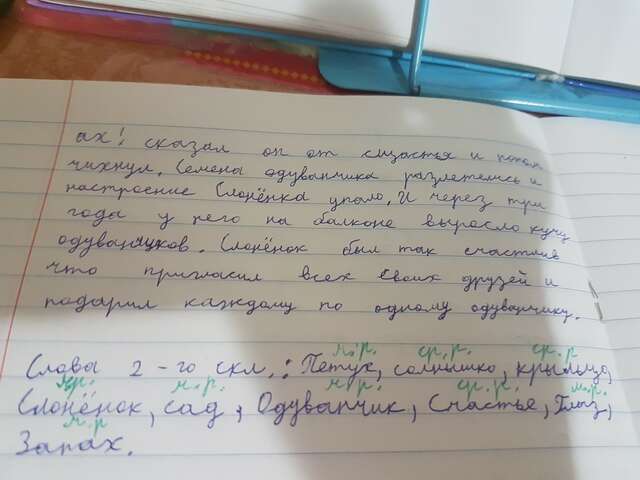 ах! сказал он от счастья и потом
чихнул. Семена одуванчика разлетелись и
настроение Слонёнка упало. И через три
года у него на балконе выросло кучу
одуванчиков. Слонёнок был так счастлив
что пригласил всех своих друзей и
подарил каждому по одному одуванчику.
м.р. ср.р. ср.р
Слова 2-го скл.: Петух, солнышко, крыльцо,
м.р. м.р. м.р. ср.р. м.р.
Слонёнок, сад, Одуванчик, Счастье, Глаз,
м.р
Запах.